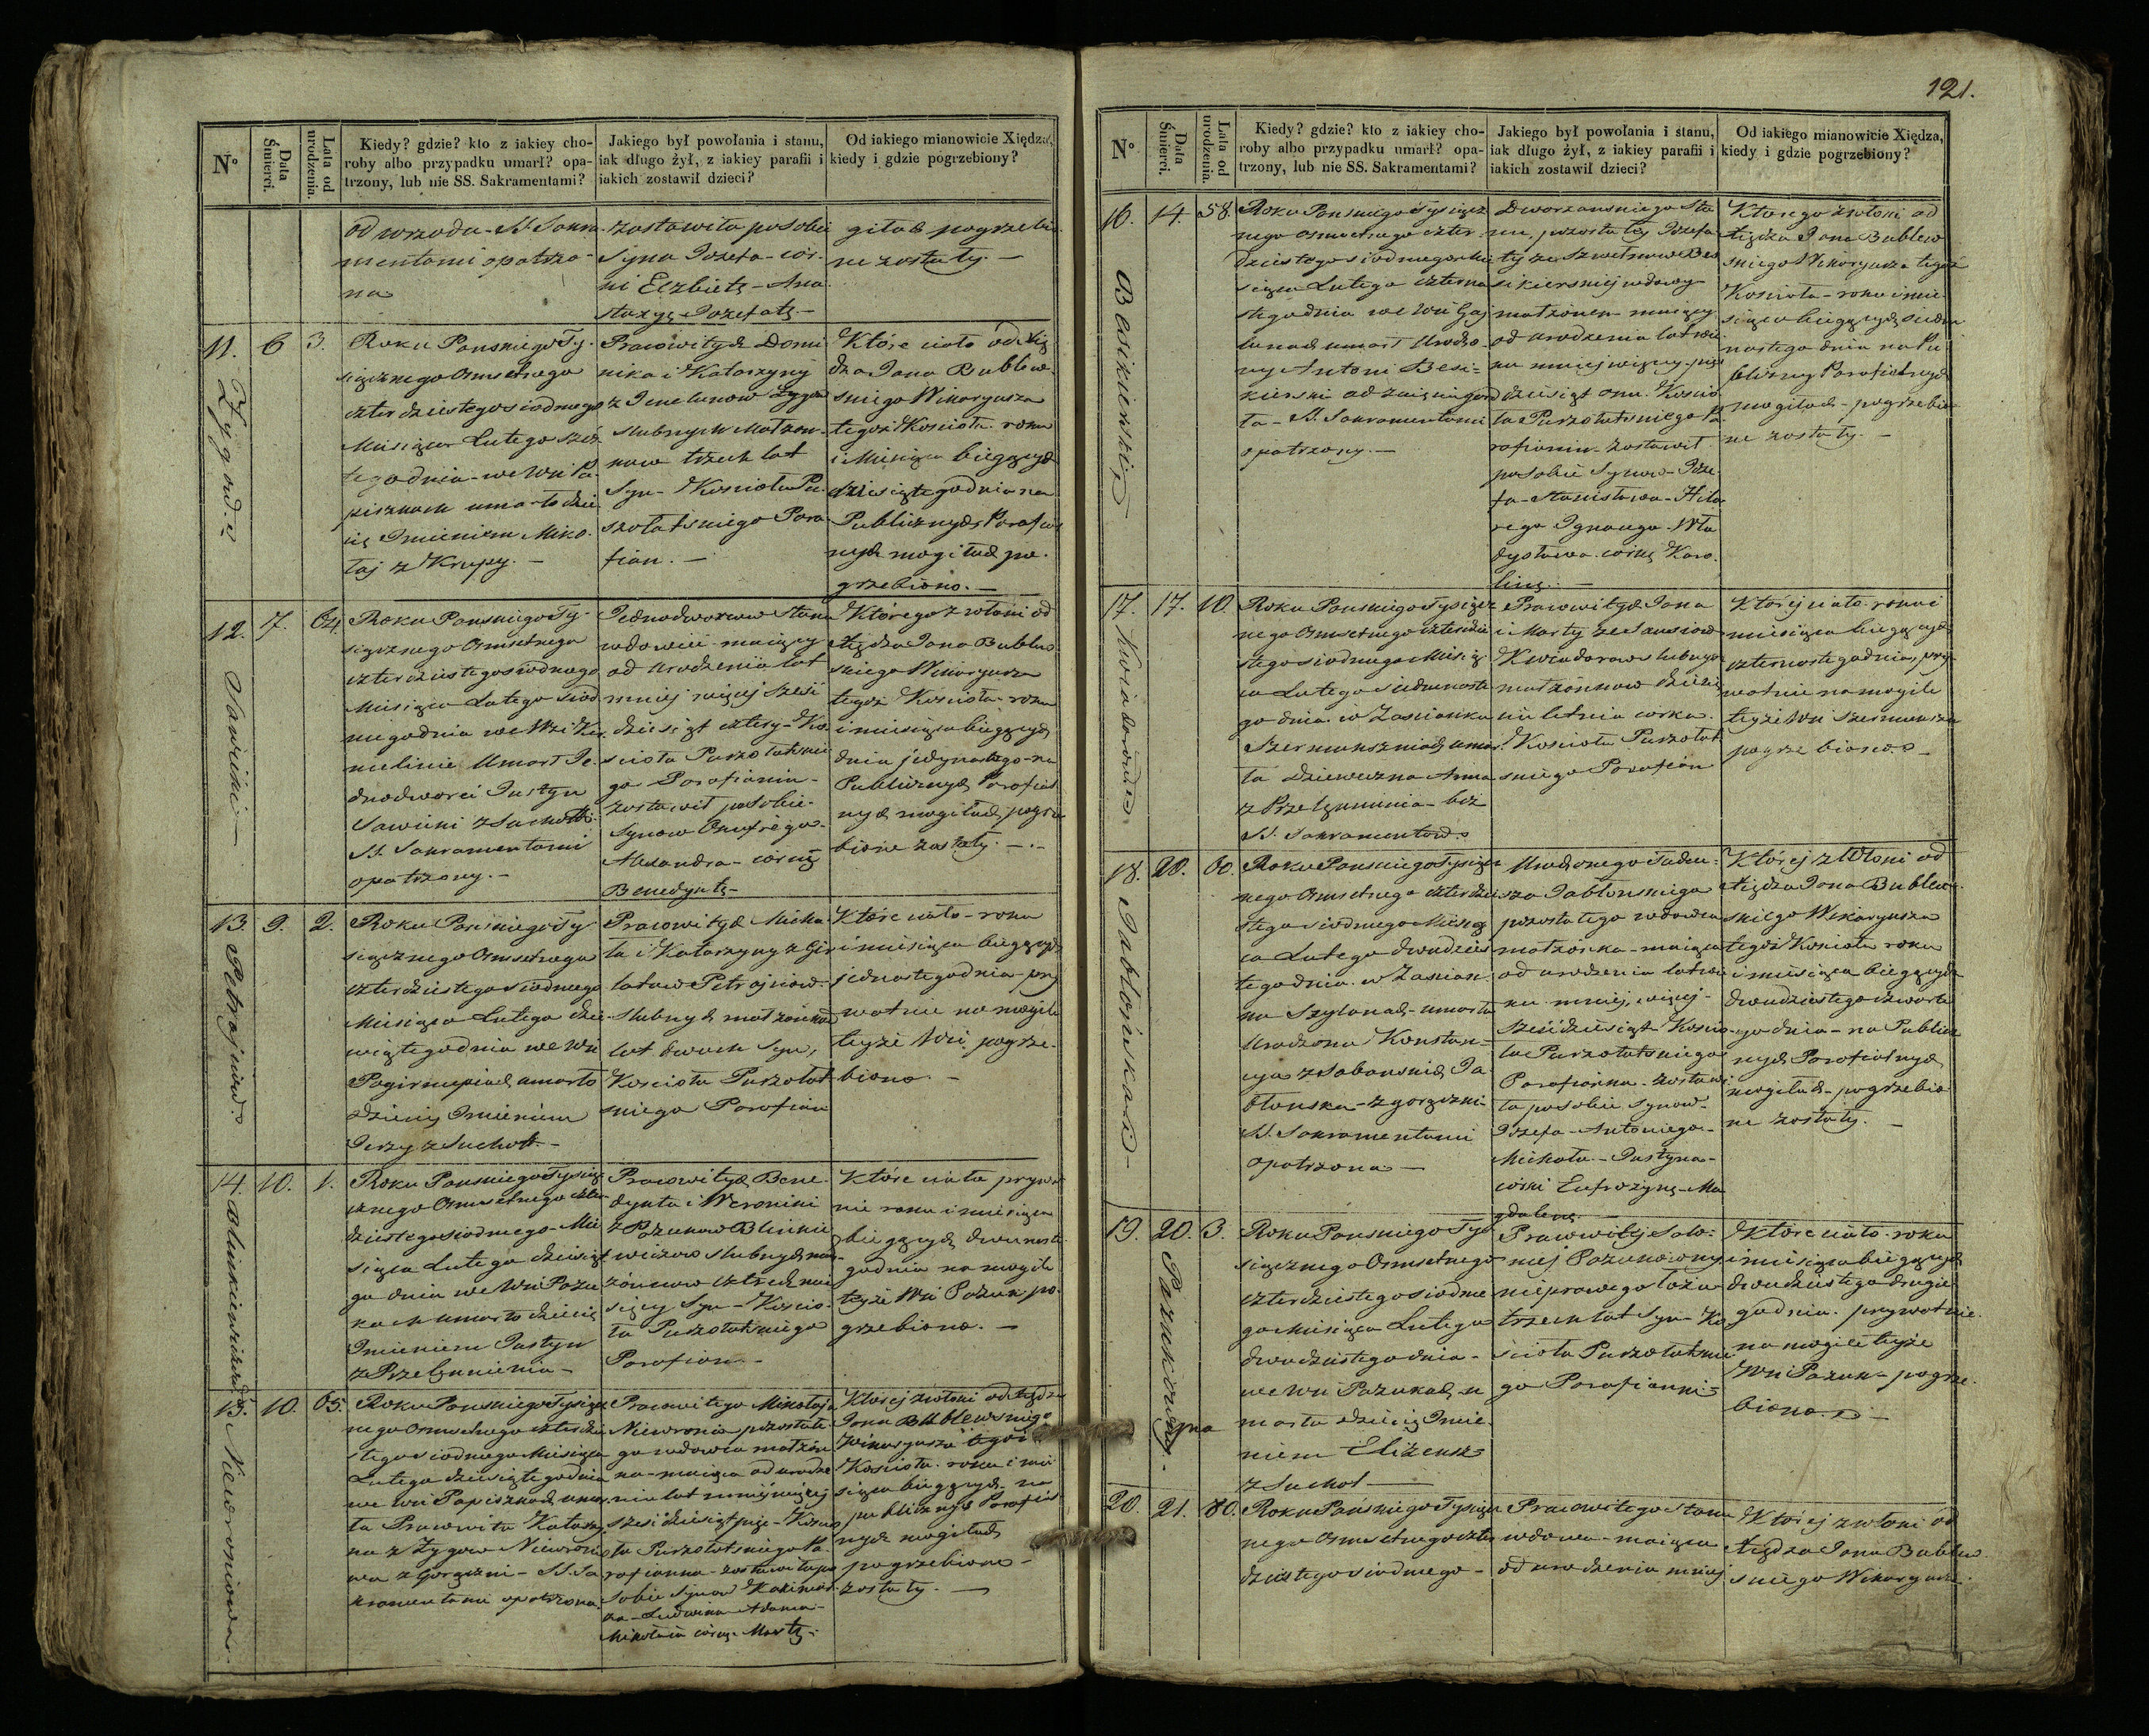 121.
N°
Data Śmierci.
Lata od urodzenia.
Kiedy? gdzie? kto z iakiey cho-
roby albo przypadku umarł? opa-
trzony, lub nie SS. Sakramentami?
Jakiego był powołania i stanu,
iak długo żył, z iakiey parafii i
iakich zostawił dzieci?
Od iakiego mianowicie Xiędza,
kiedy i gdzie pogrzebiony?
od wrzodu - SS. Sakra-
mentami opatrzo-
na
zostawiła po sobie
Syna Józefa - cór-
ki Elżbietę - Ana-
stazyę Jozefatę -
giłach pogrzebio-
ne zostały. -
11.
6
3.
Roku Panskiego Ty-
siącznego Osmsetnego
czterdziestego siodmego
Miesiąca Lutego szós-
tego dnia - we Wsi Pa-
piszkach umarło dzie-
cię Imieniem Miko-
łaj z Krupy. -
Pracowitych Domi-
nika i Katarzyny
slubnych Małżon-
kow trzech lat
Syn - Kościoła Pu-
szołatskiego Para-
fian. -
Które ciało od Xię-
dza Jana Bublew-
skiego Wikaryusza
tegoż Kościoła roku
i Miesiąca bieżących
dziewiątego dnia na
Publicznych Parafial-
nych mogiłach po-
grzebiono. -
12.
7.
64.
Sawicki -
Roku Panskiego Ty-
siącznego Osmsetnego
czterdziestego siodmego
Miesiąca Lutego siód-
mego dnia we Wsi
umarł Je-
dnodworzec Justyn
Sawicki z Suchot
SS. Sakramentami
opatrzony. -
Jednodworzec stanu
wdowiec maiący
od urodzenia lat
mniej więcej sześć-
dziesiąt cztery - Ko-
scioła Puszołatskie-
go Parafianin -
zostawił po sobie
Synow Onufrego -
Alexandra - córkę
Benedyktę -
Którego zwłoki od
Xiędza Jana Bublew-
skiego Wikaryusza
tegoż Kościoła - roku
i miesiąca bieżących
dnia jedynastego - na
Publicznych Parafial-
nych mogiłach pogrze-
bione zostały. -
13.
9.
2.
Petrajciow.
Roku Panskiego Ty-
siącznego Osmsetnego
czterdziestego siodmego
Miesiąca Lutego dzie-
wiątego dnia we Wsi
umarło
dziecię Imieniem
Jerzy z Suchot. -
Pracowitych Micha-
ła i Katarzyny z Gir-
slubnych małżonków
lat dwuch Syn,
Kościoła Puszołat-
skiego Parafian
Które ciało - roku
i miesiąca bieżących
jednastego dnia - pry-
watnie na mogile
tejże Wsi pogrze-
biono. -
14.
10.
1.
Blinkiewiczów.
Roku Panskiego Tysią-
cznego Osmsetnego czter-
dziestego siodmego - Mie-
siąca Lutego dziesiąt-
go dnia we Wsi Pozu-
kach umarło dziecię
Imieniem Justyn
z Przelęknienia -
Pracowitych Bene-
dykta i Weroniki
z Pozukow Blinkie-
wiczow slubnych mał-
Syn - Koscio-
ła Puszołatskiego
Parafian. -
Które ciało prywat-
nie roku i miesiąca
bieżących dwunaste-
go dnia na mogile
tejże Wsi Pozuk, po-
grzebiono. -
15.
10.
65.
Niewroniowa.
Roku Panskiego Tysiącz-
nego Osmsetnego czterdzie-
stego siodmego Miesiąca
Lutego dziesiątego dnia
we Wsi Papiszkach umar-
ła Pracowita Katarzy-
na z Żygow Niewronio-
wa z Gorączki - SS. Sa-
kramentami opatrzona.
Pracowitego Mikołaja
Niewronia pozostałe-
go wdowca małżon-
ka - maiąca od urodze-
nia lat mniej więcej
sześćdziesiąt pięć - Koscio-
ła Puszołatskiego Pa-
rafianka - zostawiła po
sobie Synow Kazimie-
rza - Ludwika - Adama -
Mikołaia córkę - Martę -
Ktorej zwłoki od Xiędza
Jana Bublewskiego
Wikaryusza tegoż
Kościoła - roku i mie-
siąca bieżących - na
publicznych Parafial-
nych mogiłach
pogrzebione -
zostały. -
N°
Data Śmierci.
Lata od urodzenia.
Kiedy? gdzie? kto z iakiey cho-
roby albo przypadku umarł? opa-
trzony, lub nie SS. Sakramentami?
Jakiego był powołania i stanu,
iak długo żył, z iakiey parafii i
iakich zostawił dzieci?
Od iakiego mianowicie Xiędza,
kiedy i gdzie pogrzebiony?
16.
14.
58.
Besikierski
Roku Panskiego Tysiącz-
nego Osmsetnego czter-
dziestego siodmego Mie-
siąca Lutego czterna-
stego dnia we Wsi Gaj-
lunach umarł Urodzo-
ny Antoni Besi-
kierski
SS. Sakramentami
opatrzony. -
Dworzanskiego Sta-
nu, pozostałej Józefa-
sikierskiej wdowy
małżonek - maiący
od urodzenia lat wie-
ku mniej więcej - pięć-
dziesiąt ośm. Koscio-
ła Puszołatskiego Pa-
rafianin - zostawił
po sobie Synow - Józe-
fa - Stanisława - Hila-
rego Ignacego - Wła-
dysława - córkę Karo-
linę. -
Ktorego zwłoki od
Xiędza Jana Bublew-
skiego Wikaryusza tegoż
Kościoła - roku i mie-
siąca bieżących siedm-
nastego dnia na Pu-
blicznych Parafialnych
mogiłach - pogrzebio-
ne zostały. -
17.
17.
10.
Roku Panskiego Tysiącz-
nego Osmsetnego czterdzie-
stego siodmego Miesią-
ca Lutego siedmnaste-
go dnia w Zascianku
umar-
ła Dziewczna Anna
z Przelęknienia - bez
SS. Sakramentow.
Pracowitych Jana
i Marty
slubnych
małżonkow dziesię-
cio letnia corka.
Kościoła Puszołat-
skiego Parafian
Której ciało roku i
miesiąca bieżących
pry-
watnie na mogile
tejże Wsi
pogrzebiono. -
18.
20.
60.
Jabłońska
Roku Panskiego Tysiącz-
nego Osmsetnego czterdzie-
stego siodmego Miesią-
ca Lutego dwudzies-
tego dnia w Zascian-
ku Szylanach - umarła
Urodzona Konstan-
cya z Sabanskich Ja-
błonska - z gorączki -
SS. Sakramentami
opatrzona -
Urodzonego Tadeu-
sza Jabłonskiego
pozostałego wdowca
małżonka - maiąca
od urodzenia lat wie-
ku mniej więcej -
sześćdziesiąt Koscio-
ła Puszołatskiego
Parafianka - zostawi-
ła po sobie Synow -
Józefa - Antoniego -
Michała - Justyna -
córki Eufrozynę - Ma-
gdalenę.
Której zwłoki od
Xiędza Jana Bublew-
skiego Wikaryusza
tegoż Kościoła roku
i miesiąca bieżących
dwudziestego czwarte-
go dnia - na Publicz-
nych Parafialnych
mogiłach - pogrzebio-
ne zostały. -
19.
20.
3.
Roku Panskiego Ty-
siącznego Osmsetnego
czterdziestego siodme-
go Miesiąca Lutego
dwudziestego dnia -
we Wsi Pozukach u-
marło dziecię Imie-
niem
z Suchot -
Pracowitej Salo-
mei
nieprawego łoża
trzech lat Syn - Ko-
scioła Puszołatskie-
go Parafianki
Które ciało - roku
i miesiąca bieżących
dwudziestego drugie-
go dnia - prywatnie
na mogile tejże
Wsi Pozuk - pogrze-
biono. -
20.
21.
80.
Roku Panskiego Tysiącz-
nego Osmsetnego czter-
dziestego siodmego -
Pracowitego Stanu
wdowa - maiąca
od urodzenia mniej
Której zwłoki od
Xiędza Jana Bublew-
skiego Wikaryusza